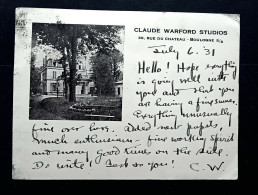 CLAUDE WARFORD STUDIOS
36, RUE DU CHATEAU - BOULOGNE S/S
July 6. 31
Hello! Hope everything
is going well with
you and that you
are having a fine summer.
Everything unusually
fine over here. Added new pupils,
much enthusiasm - fine working spirit
and many good times on the side.
Do write! Best to you! C.W.